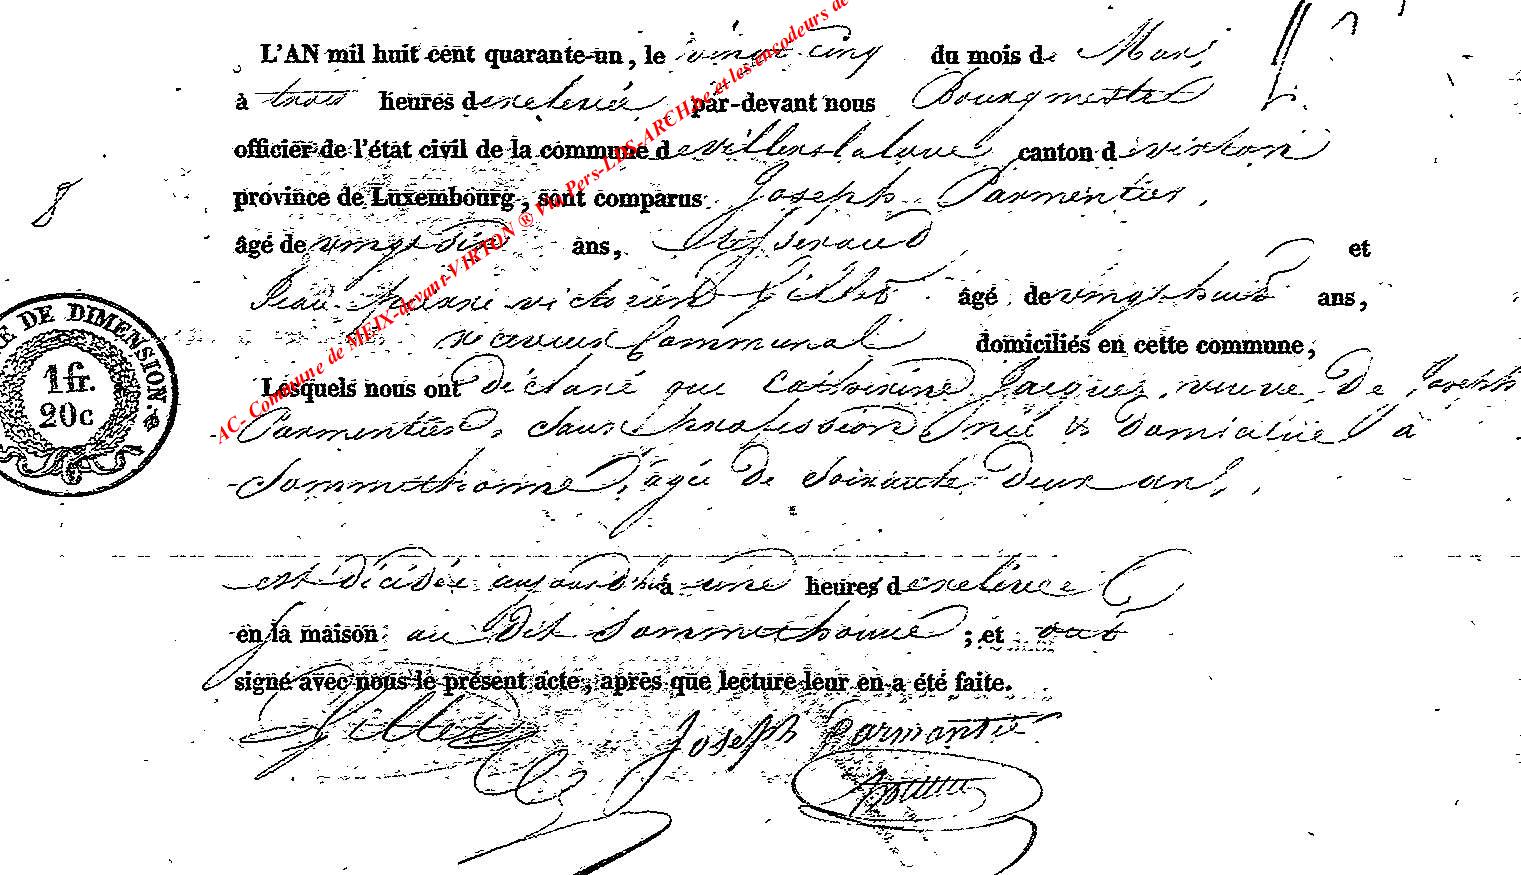 L'AN mil huit cent quarante-un, le vingt cinq du mois de Mars,
à trois heures de relevée par-devant nous Bourgmestre
officier de l'état civil de la commune de villers la loue canton de virton
province de Luxembourg, sont comparus Joseph Parmentier,
8
âgé de vingt six ans, et
Jean Pierre victorin Gillet âgé de vingt huit ans,
receveur Communal domiciliés en cette commune,
Lesquels nous ont déclaré que Catherine Jacques, veuve De Joseph
Parmentier, sans profession, née & Domiciliée à
Sommethonne, agée De Soixante Deux ans,
est décédée aujourd'hui à une heure de relevée
en la maison au Dit Sommethonne ; et ont
signé avec nous le présent acte, après que lecture leur en a été faite.
Gillet Joseph Parmentie
DE DIMENSION.
1 fr.
20 c
AC. Commune de MEIX-devant-VIRTON ® Via Pers-LDS-ARCH.be et les encodeurs de